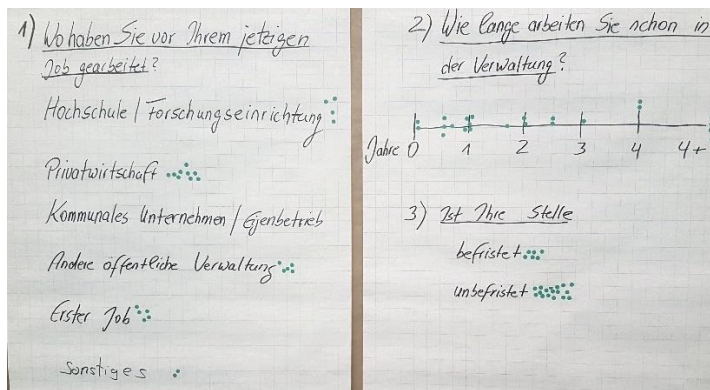 1) Wo haben Sie vor Ihrem jetzigen
Job gearbeitet?
Hochschule / Forschungseinrichtung
Privatwirtschaft
Kommunales Unternehmen / Eigenbetrieb
Andere öffentliche Verwaltung
Erster Job
Sonstiges
2) Wie lange arbeiten Sie schon in
der Verwaltung?
Jahre 0 1 2 3 4 4+
3) Ist Ihre Stelle
befristet
unbefristet